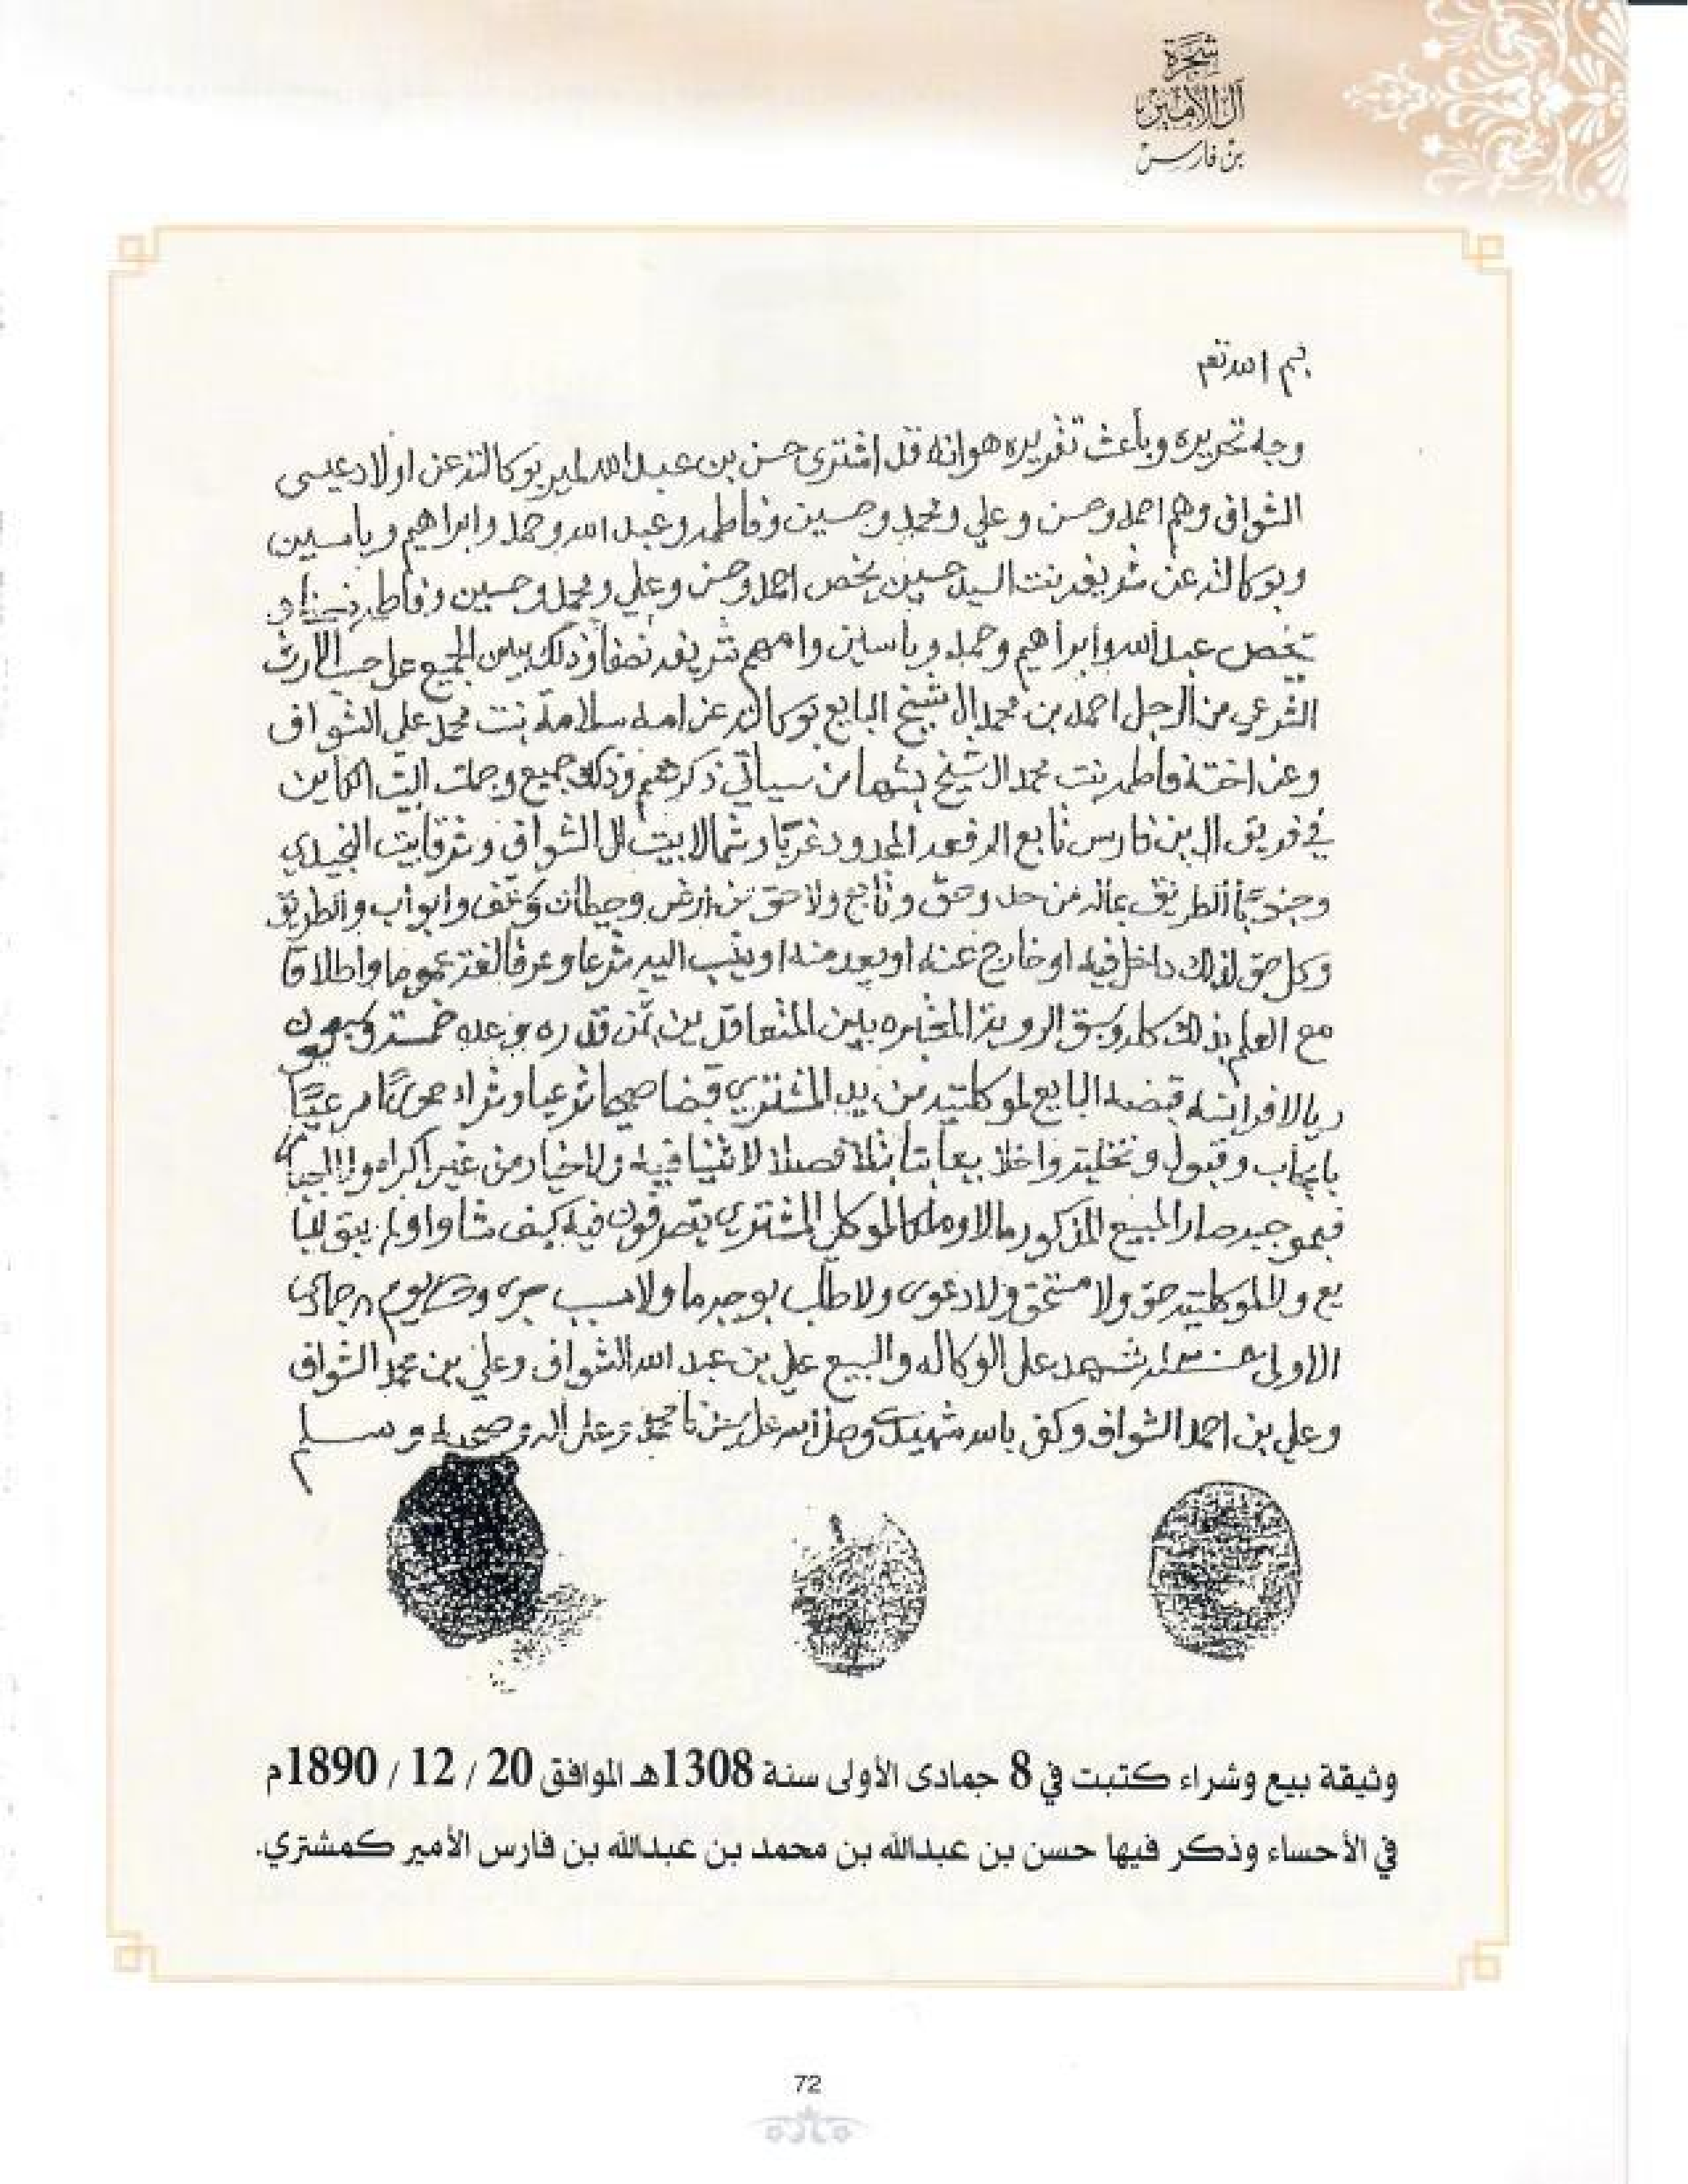 شجرة
آل الأمير
بن فارس
بسم الله تع
وجه تحريره وباعث تقريره هو انه قد اشترى حسن بن عبد الله لمير بوكالته عن اولاد عيسى
الشواف وهم احمد وحسن وعلي ومحمد وحسين وفاطمه وعبد الله وحمد وابراهيم وياسين
وبوكالته عن شريفه بنت السيد حسين يخص احمد وحسن وعلي ومحمد وحسين وفاطمه
يخص عبد الله وابراهيم وحمد وياسين وامهم شريفه نصفا وذلك بين الجميع على حسب الارث
الشرعي من الرجل احمد بن محمد ال شيخ البايع بوكالته عن امه سلامه بنت محمد علي الشواف
وعن اخته فاطمه بنت محمد ال شيخ من سياتي ذكرهم وذلك جميع وجملت البيت الكاين
في فريق ال بن فارس تابع الرفعه المحدود غربا وشمالا بيت ال الشواف وشرقا بيت النجيدي
وجنوبا الطريق بماله من حد وحق وتابع ولاحق من ارض وحيطان وغتف وابواب والطريق
وكل حق لذلك داخل فيه او خارج عنه او يعد منه او ينسب اليه شرعا وعرفا لغة عموما واطلاقا
مع العلم بذلك كله وسبق الرويه المعتبره بين المتعاقدين بثمن قدره وعده خمسة وسبعون
ريالا فرانسه قبضه البايع لموكلتيه من يد المشتري قبضا صحيحا شرعيا وشراء مرعيا
بايجاب وقبول وتخليه واخلا بيعا بتا بتلا فصلا لا ثنيا فيه ولا خيار من غير اكراه ولا
فبموجبه صار المبيع المذكور مالا وملكا لموكلي المشتري يتصرفون فيه كيف شاوا ولم يبق للبا
يع ولا لموكلتيه حق ولا مستحق ولا دعوى ولا طلب بوجه ما ولا سبب جرى وحرر يوم ٨ جمادى
الاولى شهد على الوكاله والبيع علي بن عبد الله الشواف وعلي بن محمد الشواف
وعلي بن احمد الشواف وكفى بالله شهيدا وصلى الله على محمد وعلى اله وصحبه وسلم
وثيقة بيع وشراء كتبت في 8 جمادى الأولى سنة 1308هـ الموافق 20 / 12 / 1890م
في الأحساء وذكر فيها حسن بن عبدالله بن محمد بن عبدالله بن فارس الأمير كمشتري.
72